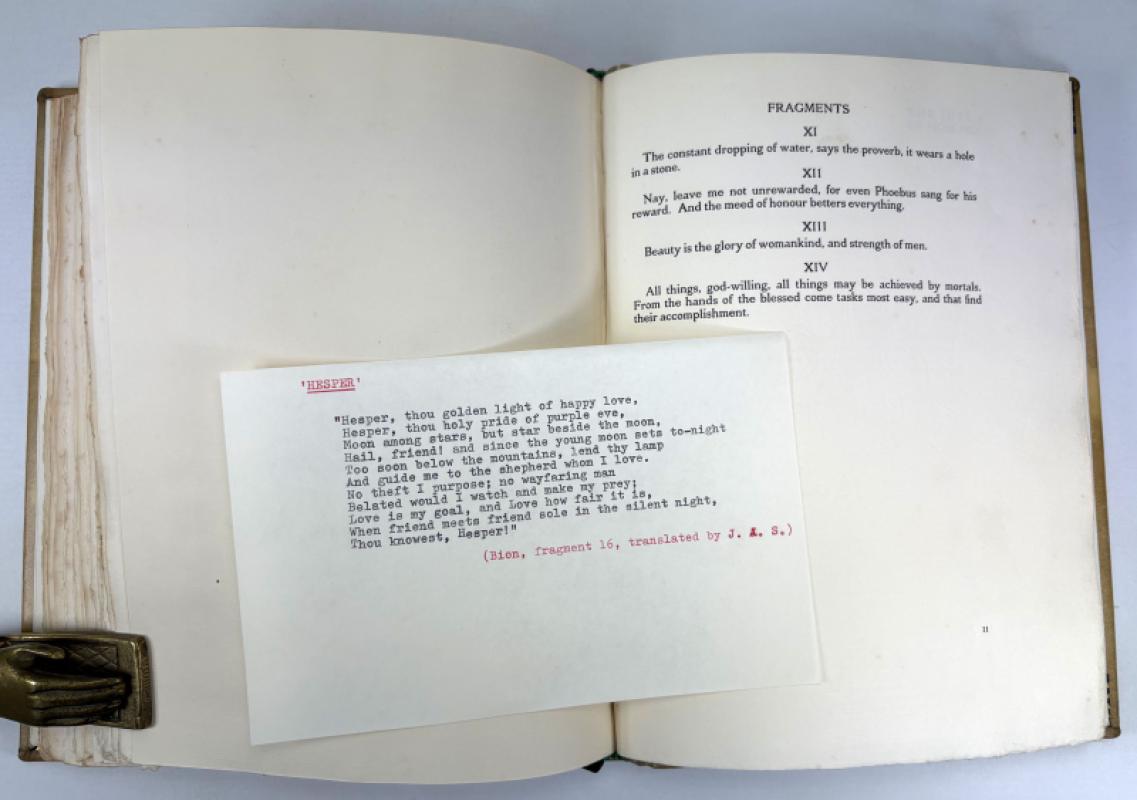 FRAGMENTS
XI
The constant dropping of water, says the proverb, it wears a hole
in a stone.
XII
Nay, leave me not unrewarded, for even Phoebus sang for his
reward. And the meed of honour betters everything.
XIII
Beauty is the glory of womankind, and strength of men.
XIV
All things, god-willing, all things may be achieved by mortals.
From the hands of the blessed come tasks most easy, and that find
their accomplishment.
11
'HESPER'
"Hesper, thou golden light of happy love,
Hesper, thou holy pride of purple eve,
Moon among stars, but star beside the moon,
Hail, friend! and since the young moon sets to-night
Too soon below the mountains, lend thy lamp
And guide me to the shepherd whom I love.
No theft I purpose; no wayfaring man
Belated would I watch and make my prey;
Love is my goal, and Love how fair it is,
When friend meets friend sole in the silent night,
Thou knowest, Hesper!"
(Bion, fragment 16, translated by J. A. S.)